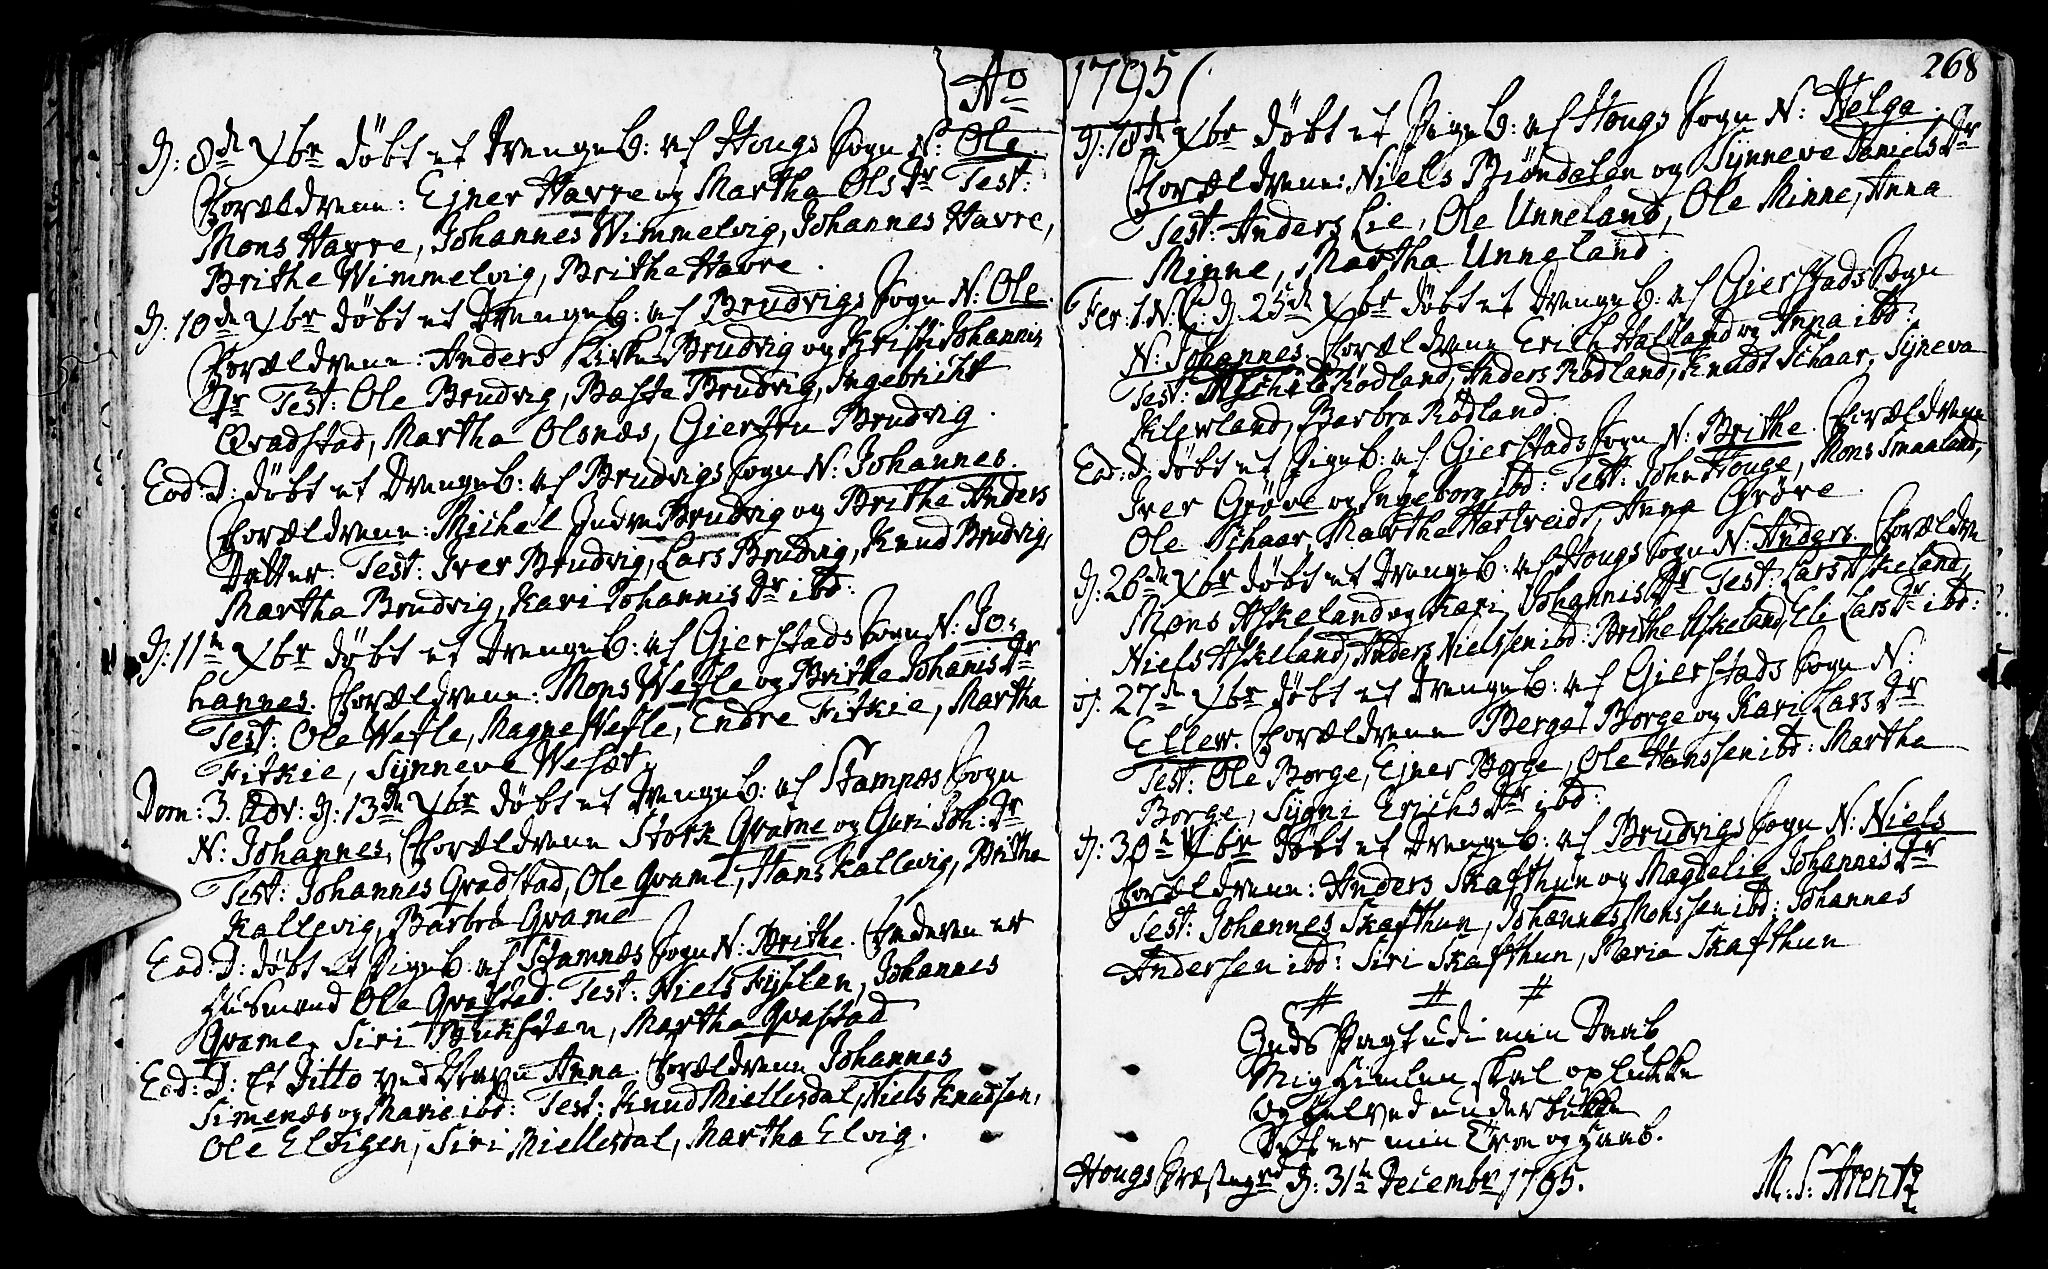 Ao
D: 8de Xbr døbt et Drengeb: af Hougs Sogn N: Ole.
Forældrene: Ejner Havre og Martha Ols Dr Test:
Mons Havre, Johannes Wimmelvig, Johannes Havre,
Brithe Wimmelvig, Brithe Havre.
D: 10de Xbr døbt et Drengeb: af Brudvigs Sogn N: Ole.
Forældrene: Anders Kirke Brudvig og Kristi Johannis
Dr Test: Ole Brudvig, Baste Brudvig, Ingebricht
Qvadstad, Martha Olsnæs, Giertru Brudvig.
Eod: D: døbt et Drengeb: af Brudvigs Sogn N: Johannes.
Forældrene: Michel Indre Brudvig og Brithe Anders
Datter. Test: Iver Brudvig, Lars Brudvig, Knud Brudvig,
Martha Brudvig, Kari Johannis Dr ibd:
D: 11te Xbr døbt et Drengeb: af Gierstads Sogn N: Jo=
hannes. Forældrene: Mons Wefle og Brithe Johanis Dr
Test: Ole Wefle, Magne Wefle, Endre Fitkie, Martha
Fitkie, Synneve Wesæt.
Dom: 3. Adv: D: 13de Xbr døbt et Drengeb: af Stamnæs Sogn
N: Johannes, Forældrene Stork Qvame og Guri Joh: Dr
Test: Johannes Qvadstad, Ole Qvame, Hans Kallevig, Britha
Kallevig, Barbro Qvame
Eod: D: døbt et Pigeb: af Stamnæs Sogn N: Brithe. Faderen er
Husmand Ole Qvastad. Test: Niels Fyslen, Johannes
Qvame, Siri, Martha Qvastad
Eod: D: Et Ditto ved Navn Anna. Forældrene Johannes
Simenæs og Marie ibd: Test: Knud Miellesdal, Niels Knudsen,
Ole, Siri Miellesdal, Martha Elvig.
1795
268
D: 18de Xbr døbt et Pigeb: af Hougs Sogn N: Helga.
Forældrene: Niels Biøndalen og Synneve Daniels Dr
Test: Anders Lie, Ole Unneland, Ole Minne, Anna
Minne, Martha Unneland
Fer: 1. N: C: D. 25de Xbr døbt et Drengeb: af Gierstads Sogn
N: Johannes, Forældrene Erich Halland og Anna ibd:
Test: Michel Rødland, Anders Rødland, Knudt Schaar, Syneva
Klevland, Barbro Rødland.
Eod: D: døbt et Pigeb: af Gierstads Sogn N: Brithe. Forældrene
Iver Grøve og Ingeborg ibd: Test: John Houge, Mons Smaaland,
Ole Schaar, Marthe Hartveid, Anna Grøve.
D: 26de Xbr døbt et Drengeb: af Hougs Sogn N: Anders. Forældrene
Mons Askeland og Kari Johannis Dr Test: Lars Askeland,
Niels Askeland, Anders Nielssen ibd: Brithe Askeland, Eli Lars Dr ibd:
D: 27de Xbr døbt et Drengeb: af Gierstads Sogn N:
Ellev. Forældrene Berge Borge og Kari Lars Dr
Test: Ole Borge, Ejner Borge, Ole Hanssen ibd: Martha
Borge, Sygni Erichs Dr ibd:
D: 30te Xbr døbt et Drengeb: af Brudvigs Sogn N: Niels
Forældrene: Anders Skafthun og Magdelie Johannis Dr
Test: Johannes Skafthun, Johannes Monssen ibd: Johannes
Andersen ibd: Siri Skafthun, Maria Skafthun
# # #
Guds Pagt udi min Daab
Mig Himlen skal oplukke
og Helved underbukke
Det er min Troe og Haab.
Hougs Præstegrd D: 31te Decembr 1795.
M. S. Arentz